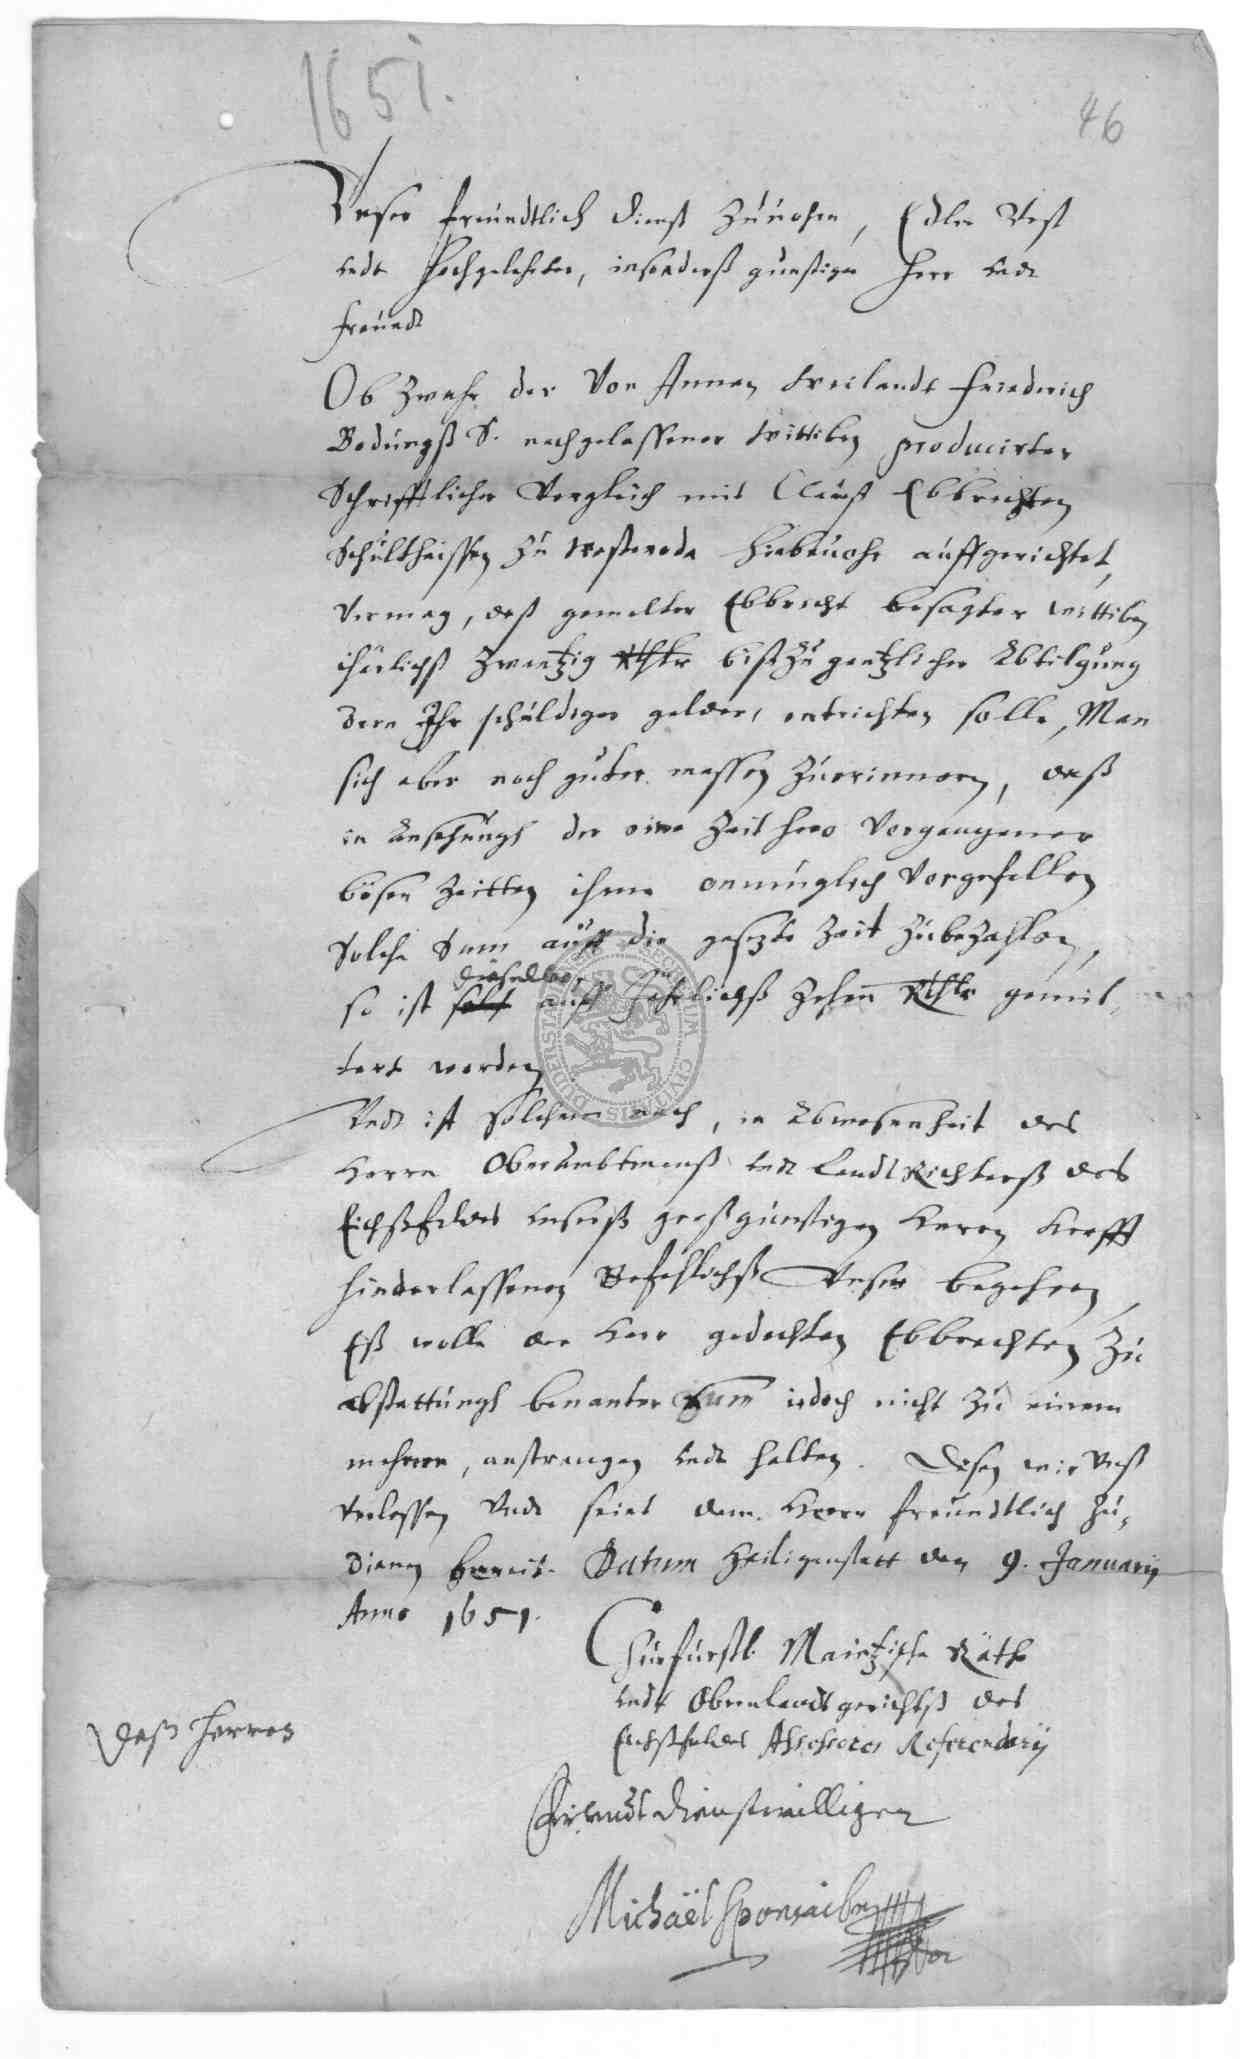 1651.
46
Unser freundtlich dienst zuuohrn, Edler Vest
undt Hochgelehrter, insonderß gunstiger Herr undt
freundt
Ob zwahr der von Annen weilandt Friederich
Bodungß S. nachgelassener Wittiben producirter
Schrifftlicher Verglich mit Clauß Ebbrechten
Schultheissen zu Westeroda hiebeuohr auffgerichtet,
vermag, daß gemelter Ebbrecht besagter wittiben
ihärlichß zwantzig Rthlr biß zu gentzlicher Abtilgung
dern Ihr schuldiger gelder, entrichten solle, Man
sich aber noch guter massen zuerinnern, daß
in Ansehungk der eine Zeit hero vorgangener
bösen Zeitten ihme onmüglich vorgefallen
solche Sum auff die gesezte Zeit zubezahlen,
dieselbe
so ist solch auff Jahrlichß zehen Rthlr gemil-
tert worden
Undt ist solchem nach, in Abwesenheit des
Herrn OberAmbtmanß undt LandtRichterß des
Eichßfeldes unserß großgünstigen Herrn Krafft
hinderlassenen Befehlichß Unser begehren,
Eß wolle der Herr gedachten Ebbrechten zu
abstattungk benanter Sum iedoch nicht zu einem
mehrern, anstrengen undt halten. Desen wir Unß
verlassen Undt seint dem Herrn freundtlich zu-
dienen bereit. Datum Heiligenstatt den 9. Januarij
Anno 1651.
Churfürstl. Maintzische Räthe
undt Oberenlandtgerichtß des
Eichßfeldes Assessores Referendarij
Deß Herren
Freundtdienstwilligen
Michäel
DUDERSTADT CIVITATIS